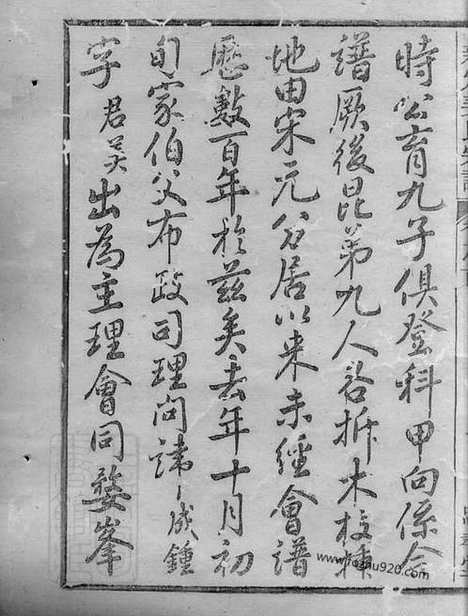 時公育九子俱登科甲向係合
譜厥後昆弟九人各拆木枝棟
地由宋元分居以来未經會譜
歷數百年於茲矣去年十月初
旬家伯父布政司理問諱成鍾
字君美出為主理會同婺峯
www.jiapu920.com